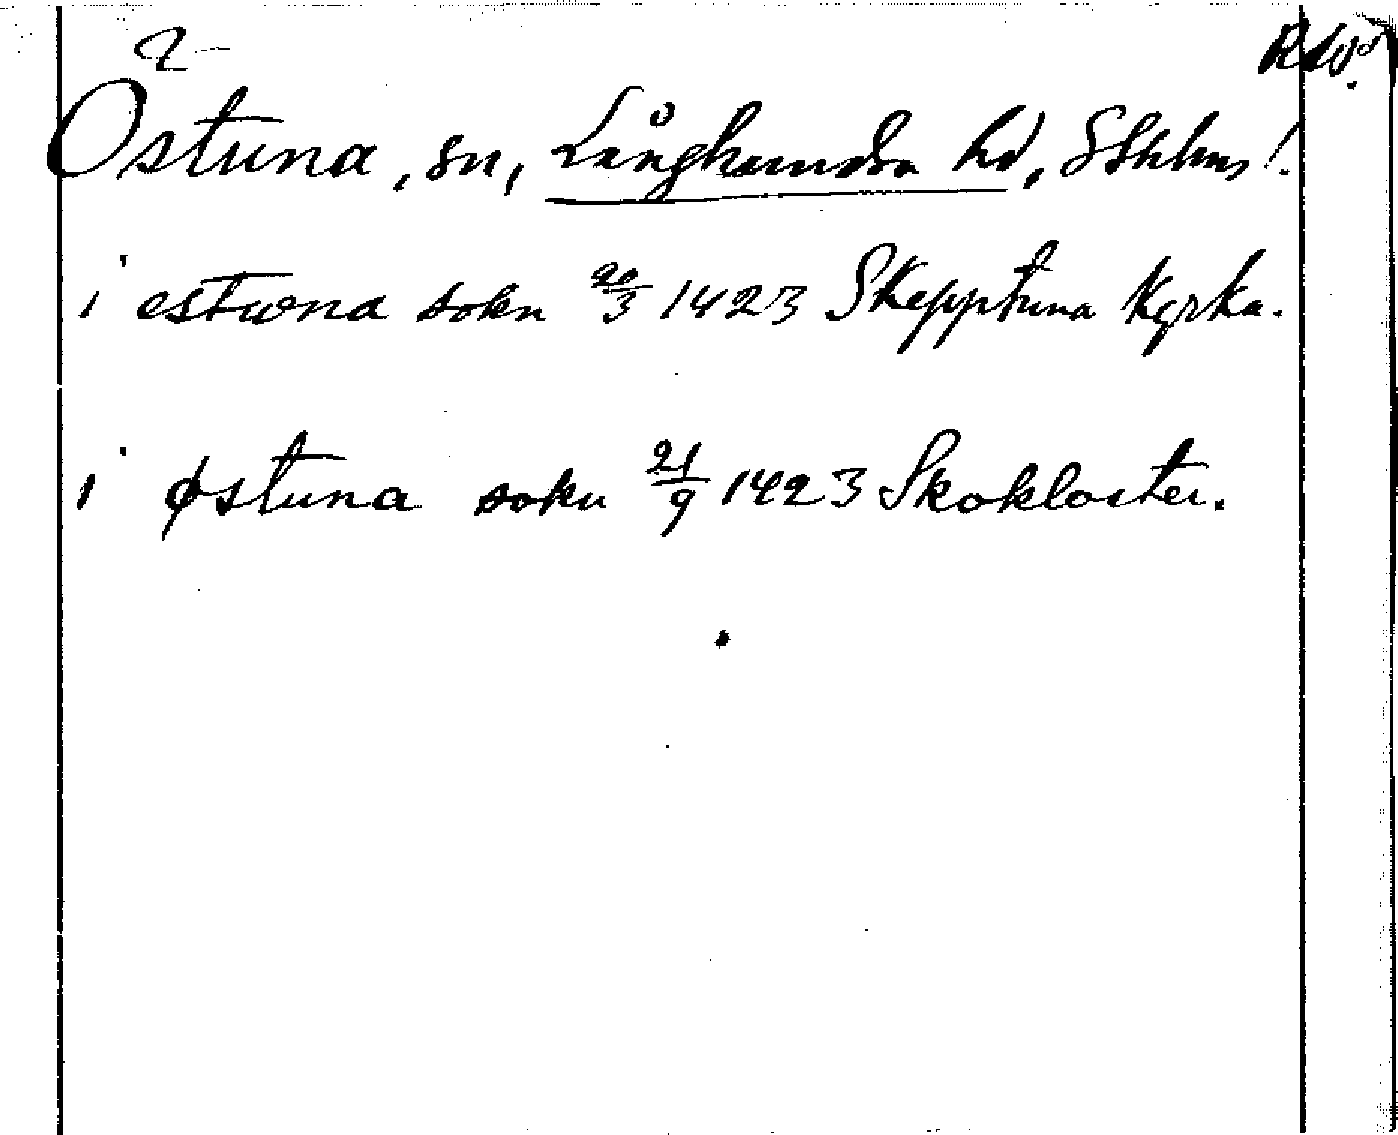 Östuna, sn, Långhundra hd, Sthlms l.
i estwna sokn 20/3 1423 Skepptuna Kyrka.
i østuna sokn 21/9 1423 Skokloster.